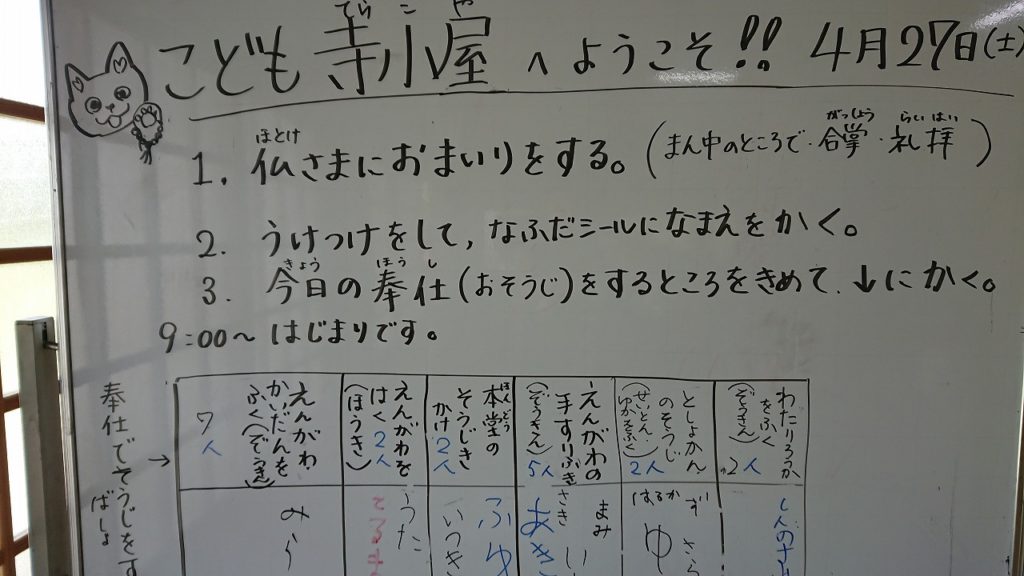 こども寺小屋へようこそ!! 4月27日(土)
てらこや
1. 仏さまにおまいりをする。(まん中のところで・合掌・礼拝)
ほとけ
がっしょう らいはい
2. うけつけをして,なふだシールになまえをかく。
3. 今日の奉仕(おそうじ)をするところをきめて、↓にかく。
きょう ほうし
9:00〜はじまりです。
奉仕でそうじをす
ばしょ
→
わたりろうか
をふく
(ぞうきん)
2人
としょかん
のそうじ
(せいとん、
ゆかをふく)
2人
えんがわの
手すりふき
(ぞうきん)
5人
本堂の
ほんどう
そうじき
かけ2人
えんがわを
はく2人
(ほうき)
えんがわ
かいだんを
ふく(ぞうきん)
7人
はるか
ゆ
さら
まみ
ささき
あき
ふゆ
いつき
うた
みら